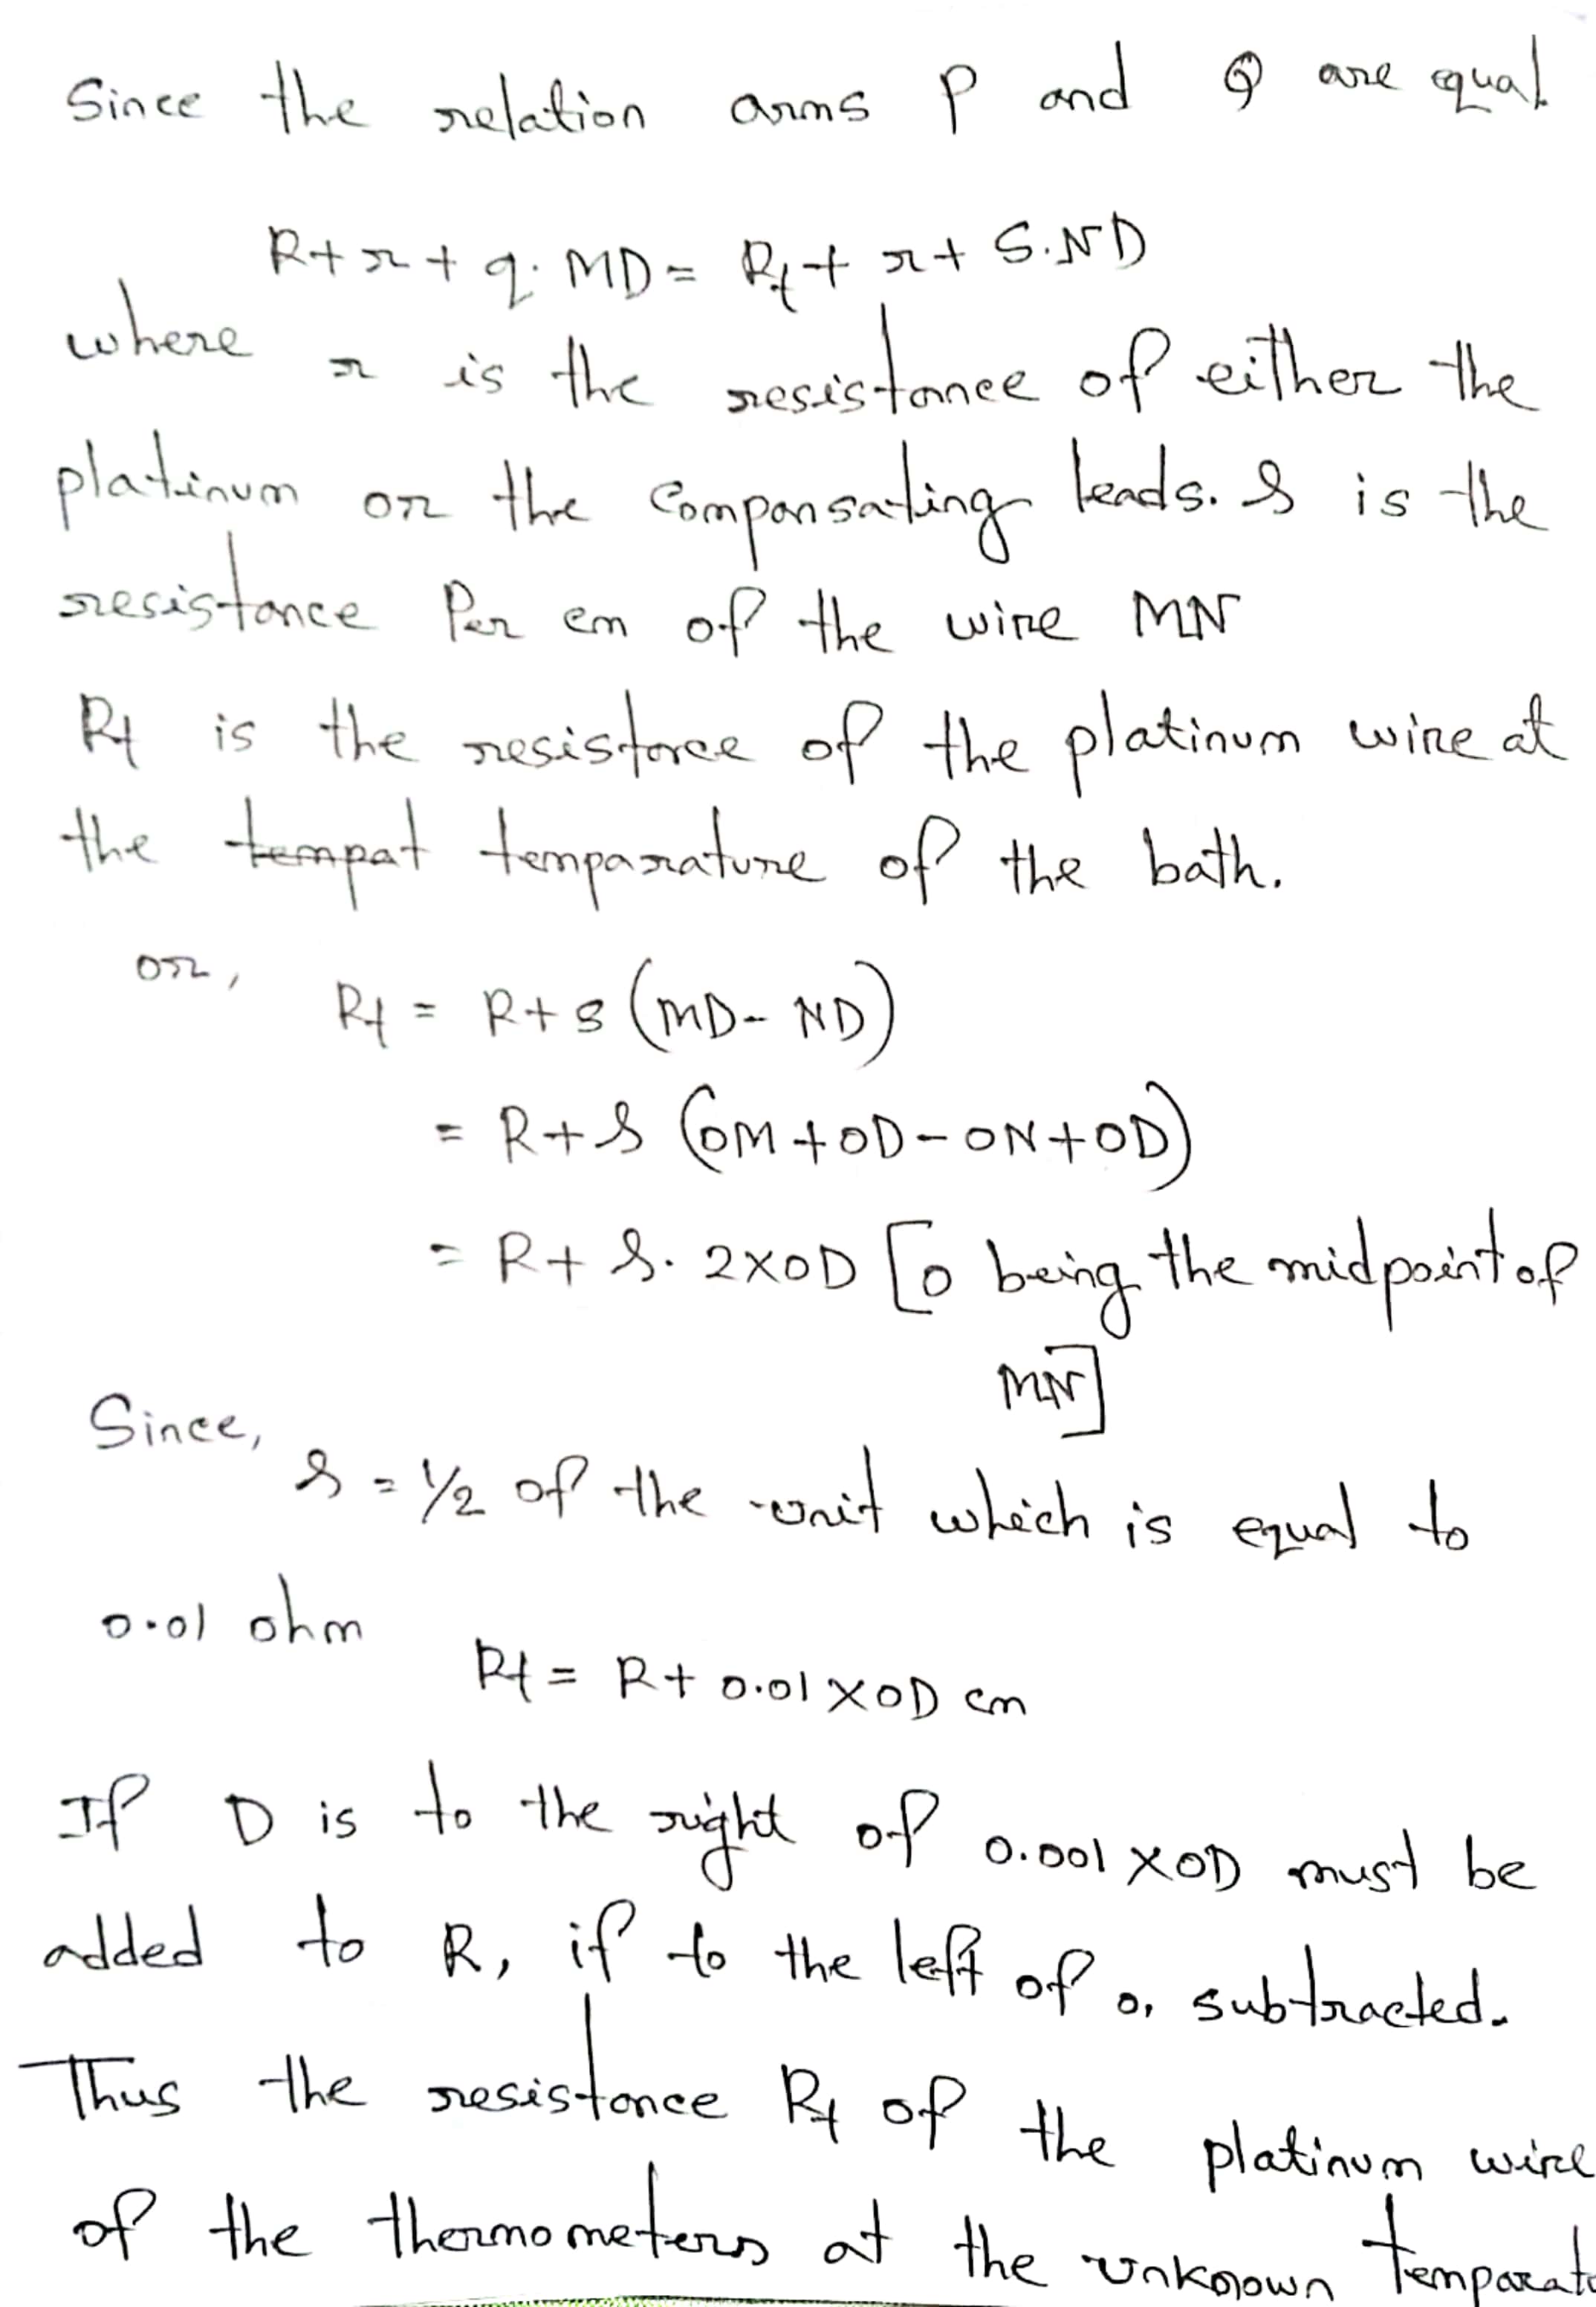 Since the relation arms P and Q are equal
R+r+q.MD= Rt+ r+ S.ND
where r is the resistance of either the
platinum or the Compansating leads. S is the
resistance Per cm of the wire MN
Rt is the resistance of the platinum wire at
the tempat temparature of the bath.
or, Rt = R+s (MD- ND)
= R+S (OM+OD-ON+OD)
= R+ S. 2xOD [o being the midpoint of
MN]
Since, s = 1/2 of the unit which is equal to
0.01 ohm
Rt = R+ 0.01 XOD cm
If D is to the right of 0.001 XOD must be
added to R, if to the left of o, subtracted.
Thus the resistance Rt of the platinum wire
of the thermometers at the unknown Temparatu